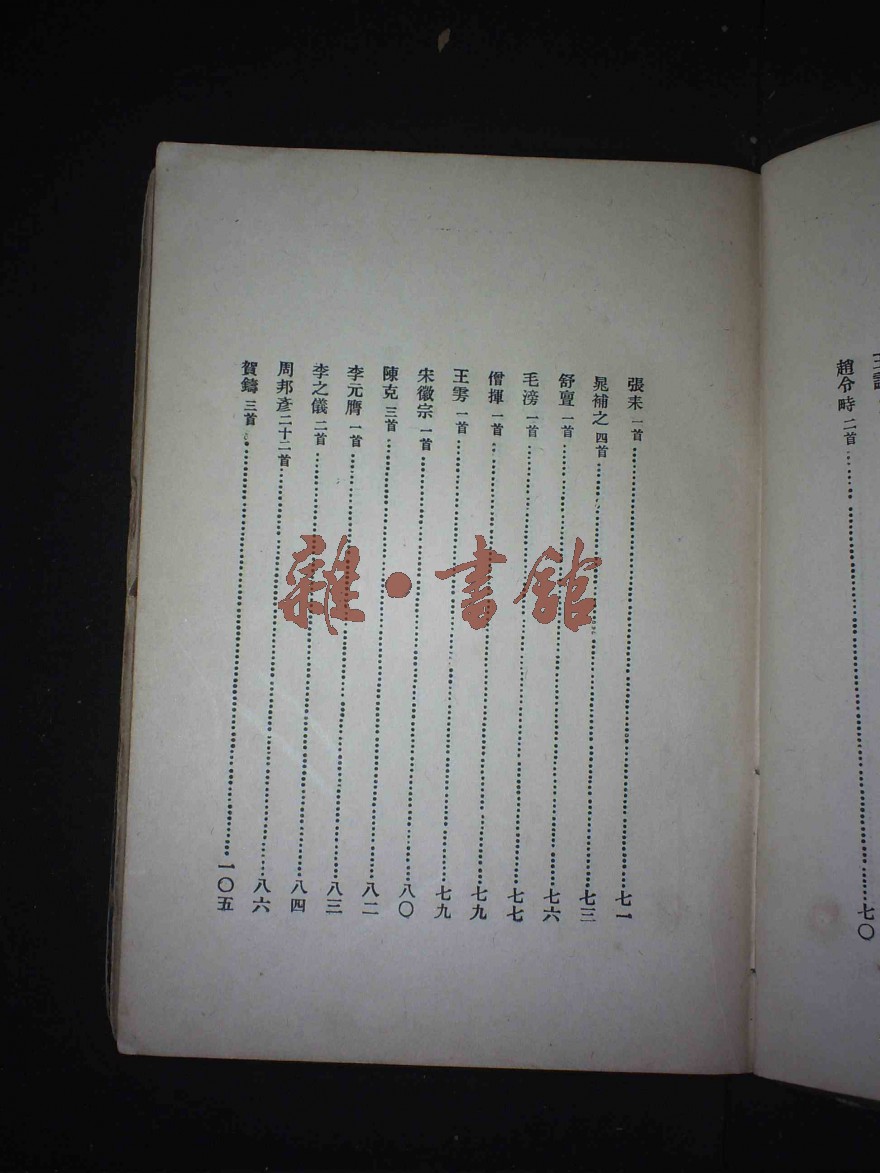 趙令時 二首 七〇
張耒 一首 七一
晁補之 四首 七三
舒亶 一首 七六
毛滂 一首 七七
僧揮 一首 七九
王雱 一首 七九
宋徽宗 一首 八〇
陳克 三首 八二
李元膺 一首 八三
李之儀 二首 八四
周邦彥 二十二首 八六
賀鑄 三首 一〇五
雜·書館